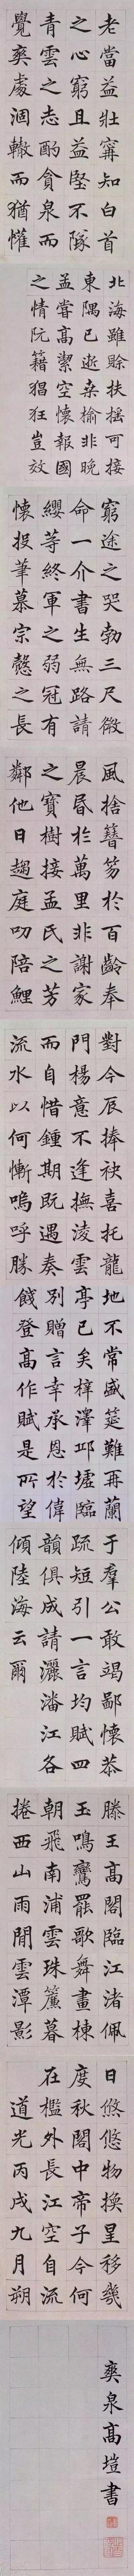 老當益壯寧知白首
之心窮且益堅不隊
青雲之志酌貪泉而
覺爽處涸轍而猶懽
北海雖賒扶搖可接
東隅已逝桑榆非晚
孟嘗高潔空懷報國
之情阮籍猖狂豈效
窮途之哭勃三尺微
命一介書生無路請
纓等終軍之弱冠有
懷投筆慕宗愨之長
風捨簪笏於百齡奉
晨昏於萬里非謝家
之寶樹接孟氏之芳
鄰他日趨庭叨陪鯉
對今辰捧袂喜托龍
門楊意不逢撫淩雲
而自惜鍾期既遇奏
流水以何慚嗚呼勝
地不常盛筵難再蘭
亭已矣梓澤邱墟臨
別贈言幸承恩於偉
餞登高作賦是所望
于羣公敢竭鄙懷恭
疏短引一言均賦四
韻俱成請灑潘江各
傾陸海云爾
滕王高閣臨江渚佩
玉鳴鸞罷歌舞畫棟
朝飛南浦雲珠簾暮
捲西山雨閒雲潭影
日悠悠物換星移幾
度秋閣中帝子今何
在檻外長江空自流
道光丙戌九月朔
爽泉高塏書